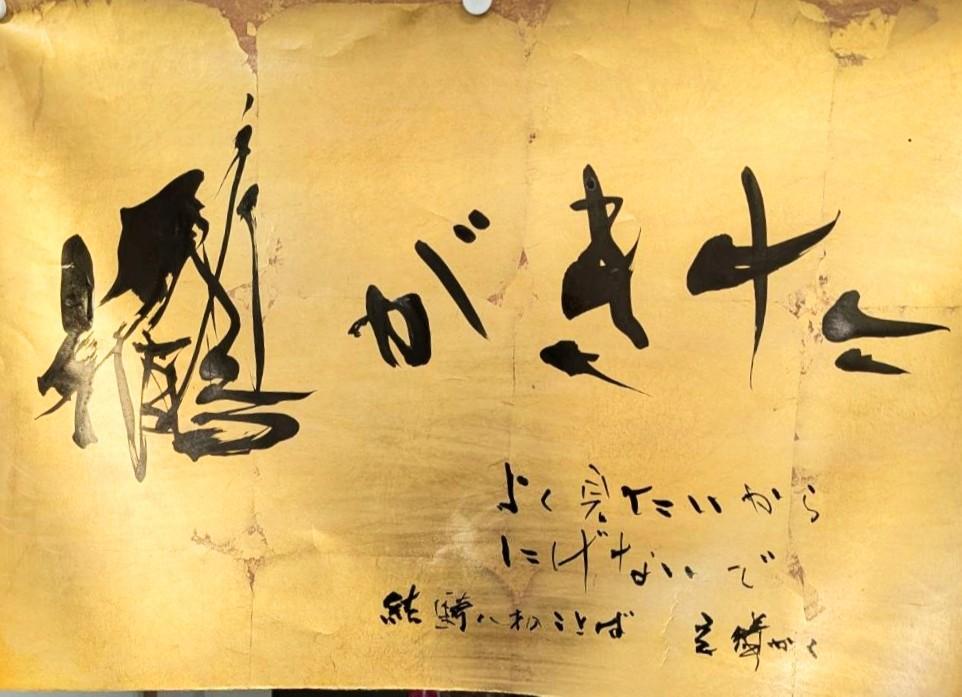 がきた
よく見たいから
にげないで
結騎八才のことば かく